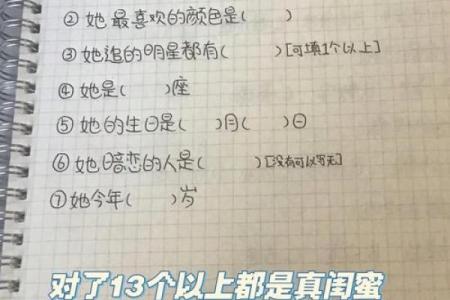 ②她最喜欢的颜色是(    )
③她追的明星都有(    )[可填1个以上]
④她是(    )座
⑤她的生日是(    )月(    )日
⑥她暗恋的人是(    )[没有可以写无]
⑦她今年(    )岁
对了13个以上都是真闺蜜